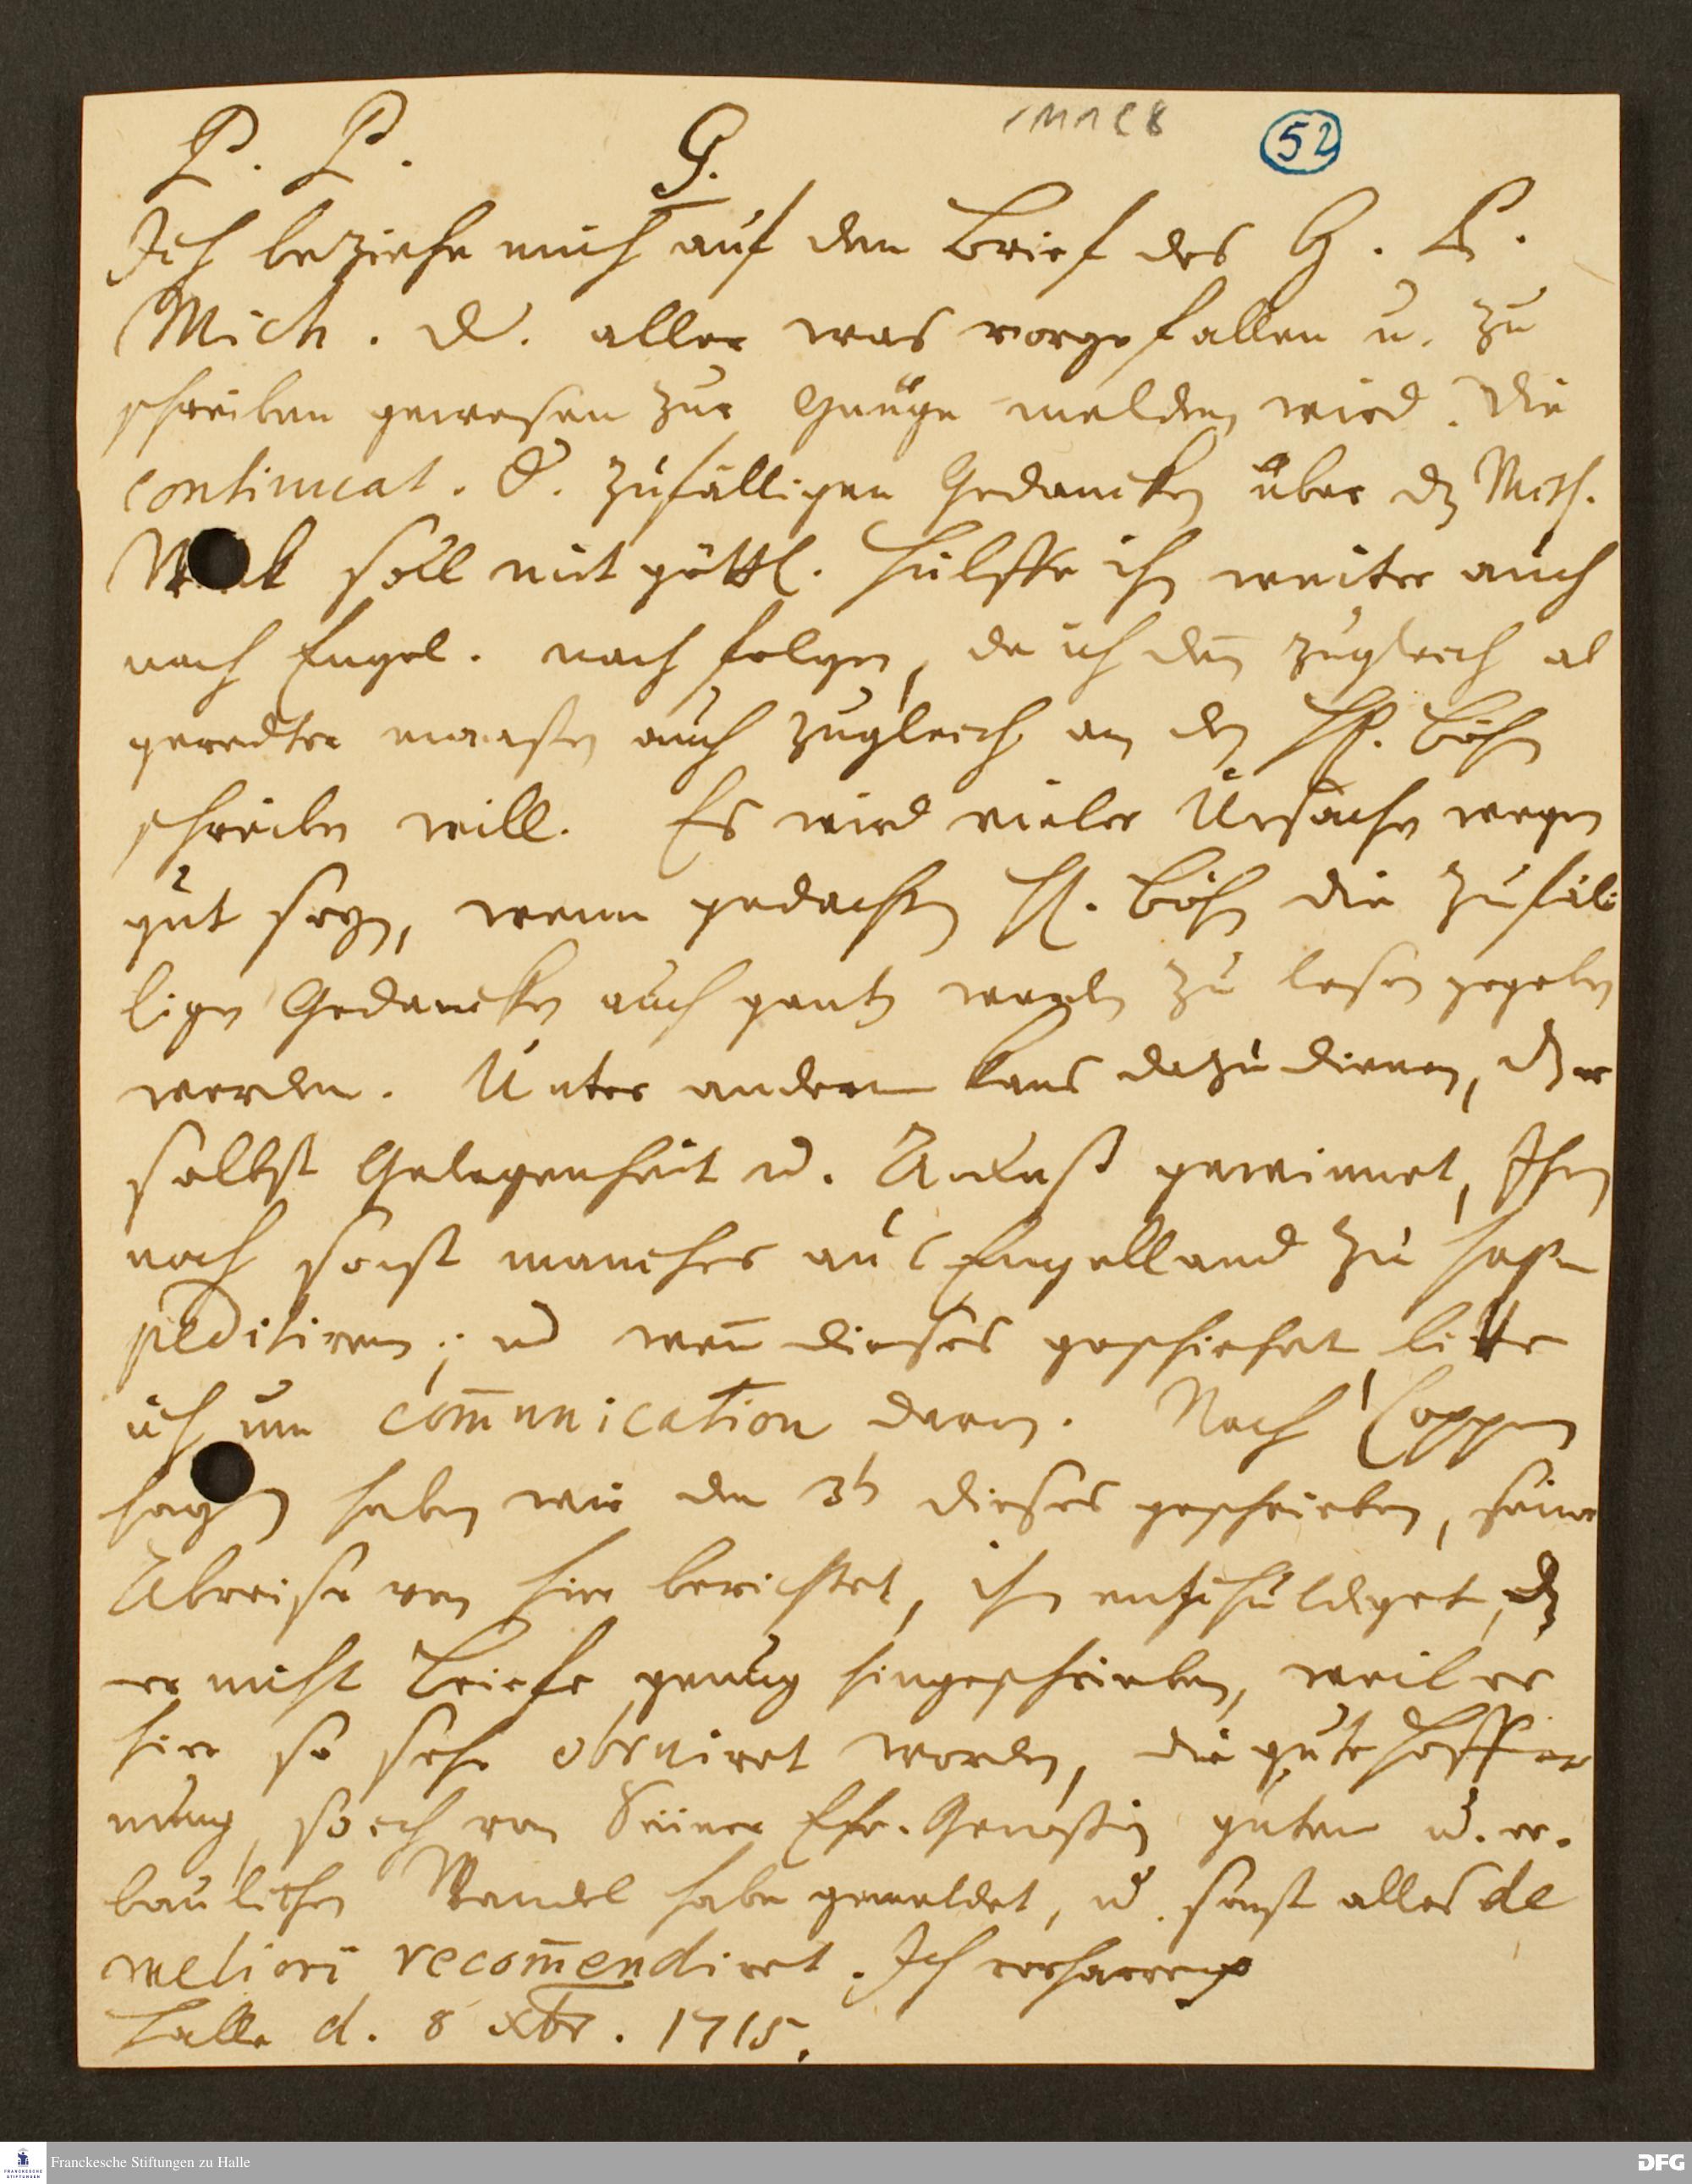 P. P. S.
1 M 1 C 8
52
Ich beziehe mich auf den Brief des H. L.
Mich. d. alles was vorgefallen u. zu
schreiben gewesen zur Genüge melden wird. Die
continuat. d. zufälligen Gedancken über dz Miss.
W k soll mit göttl. Hülffe ihn weiter auch
nach Engel. nach folgen, da ich den̄ zugleich al
geredter maaßen auch zugleich an den H. Böhm
schreiben will. Es wird vieler Ursachen wegen
gut seyn, wenn gedachten H. Böhm die Zufäl
ligen Gedancken auch gantz werden zu lesen gegeben
werden. Unter andern kans dazu dienen, dz er
selbst Gelegenheit u. Anlaß gewinnet, Ihm
noch sonst manches aus Engelland zu
peditiren; u wen̄ dieses geschiehet bitte
ich um com̄unication deren. Nach Coppen
hagen haben wir den 3t dieses geschrieben, seine
Abreise von hier berichtet, ihn entschuldiget, dz
er nicht Briefe genug hingeschrieben, weil er
hier so sehr obruiret worden, die gute Hoff
nung, so ich von Seiner Ehe-Genoßin guten u. er-
baulichen Wandel habe gemeldet, u. sonst alles de
meliori recom̄endiret. Ich verharre
Halle d. 8 xbr. 1715.
Franckesche Stiftungen zu Halle
FRANCKESCHE STIFTUNGEN
DFG